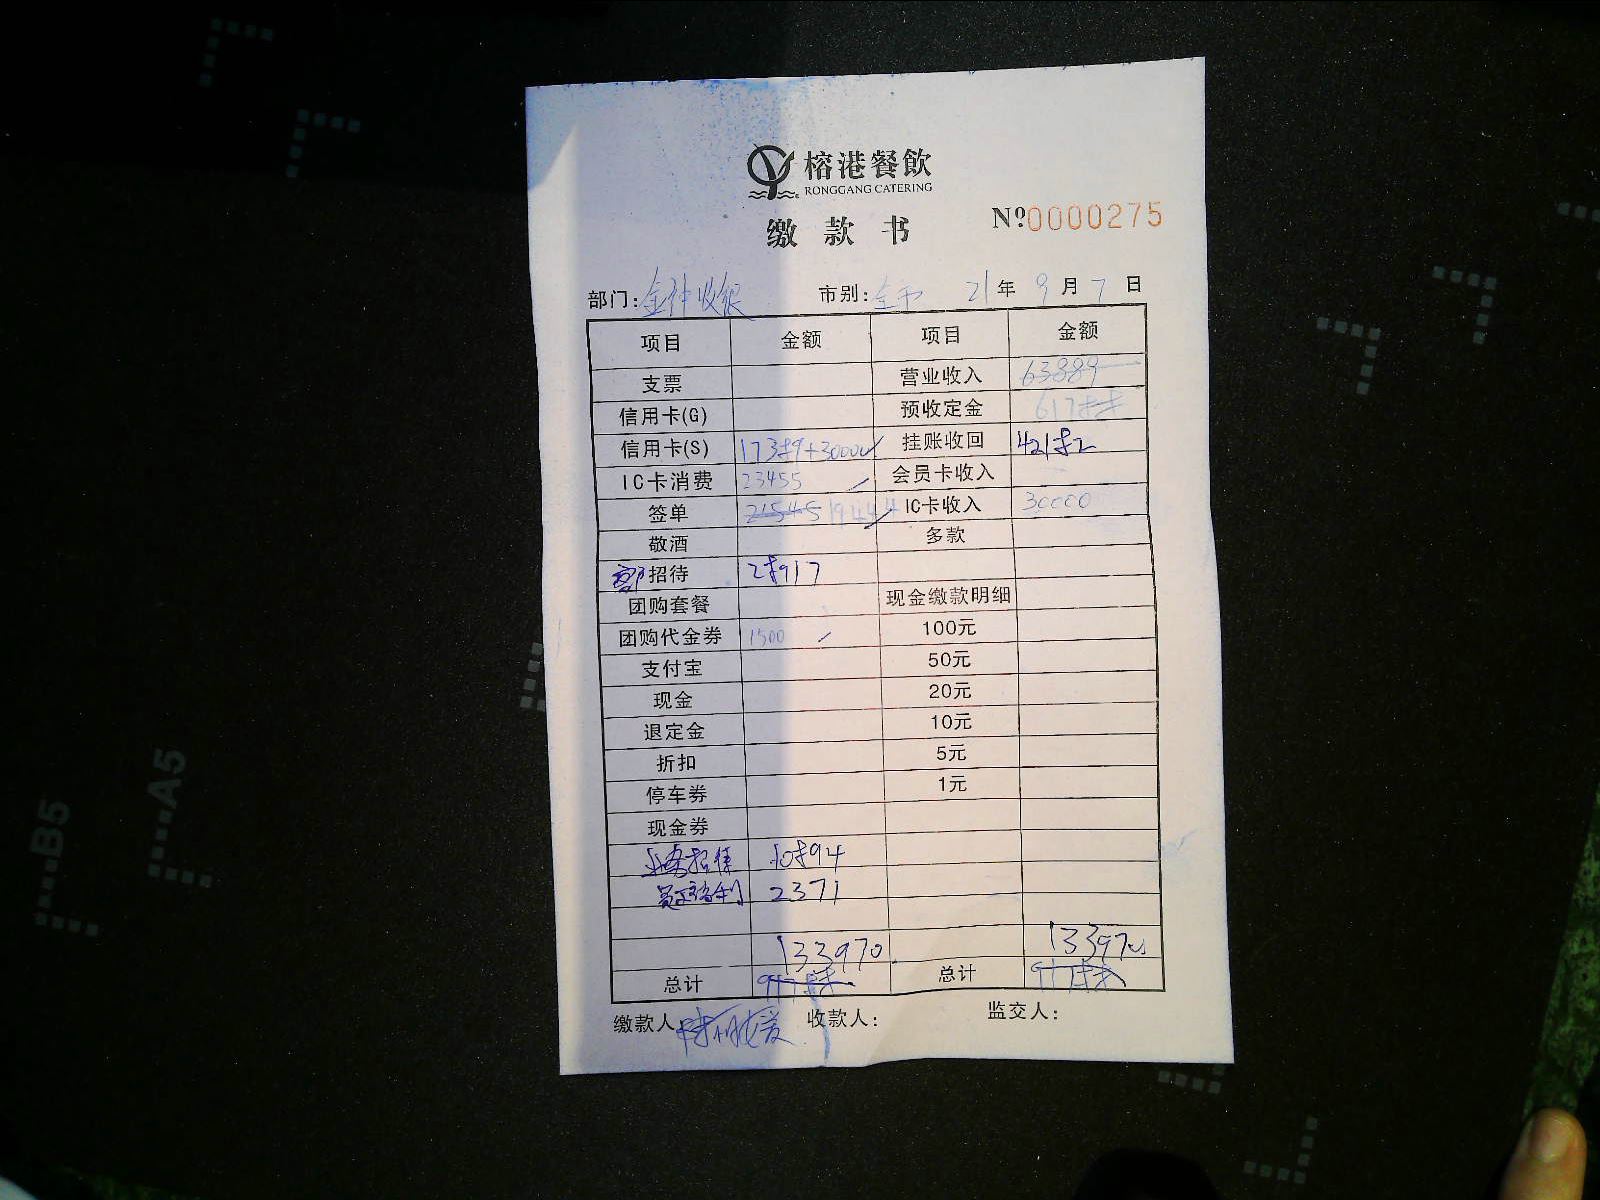 榕港餐飲
RONGGANG CATERING
缴款书 Nº0000275
部门: 金神收银 市别: 21年9月7日
项目 金额 项目 金额
支票 营业收入 63889
信用卡(G) 预收定金
信用卡(S) 挂账收回
IC卡消费 23455 会员卡收入
签单 21545 19444 IC卡收入 30000
敬酒 多款
招待
团购套餐 现金缴款明细
团购代金券 1500 100元
支付宝 50元
现金 20元
退定金 10元
折扣 5元
停车券 1元
现金券
业务招待
员工福利 2371
133970 133970
总计 总计
缴款人: 收款人: 监交人:
B5
A5